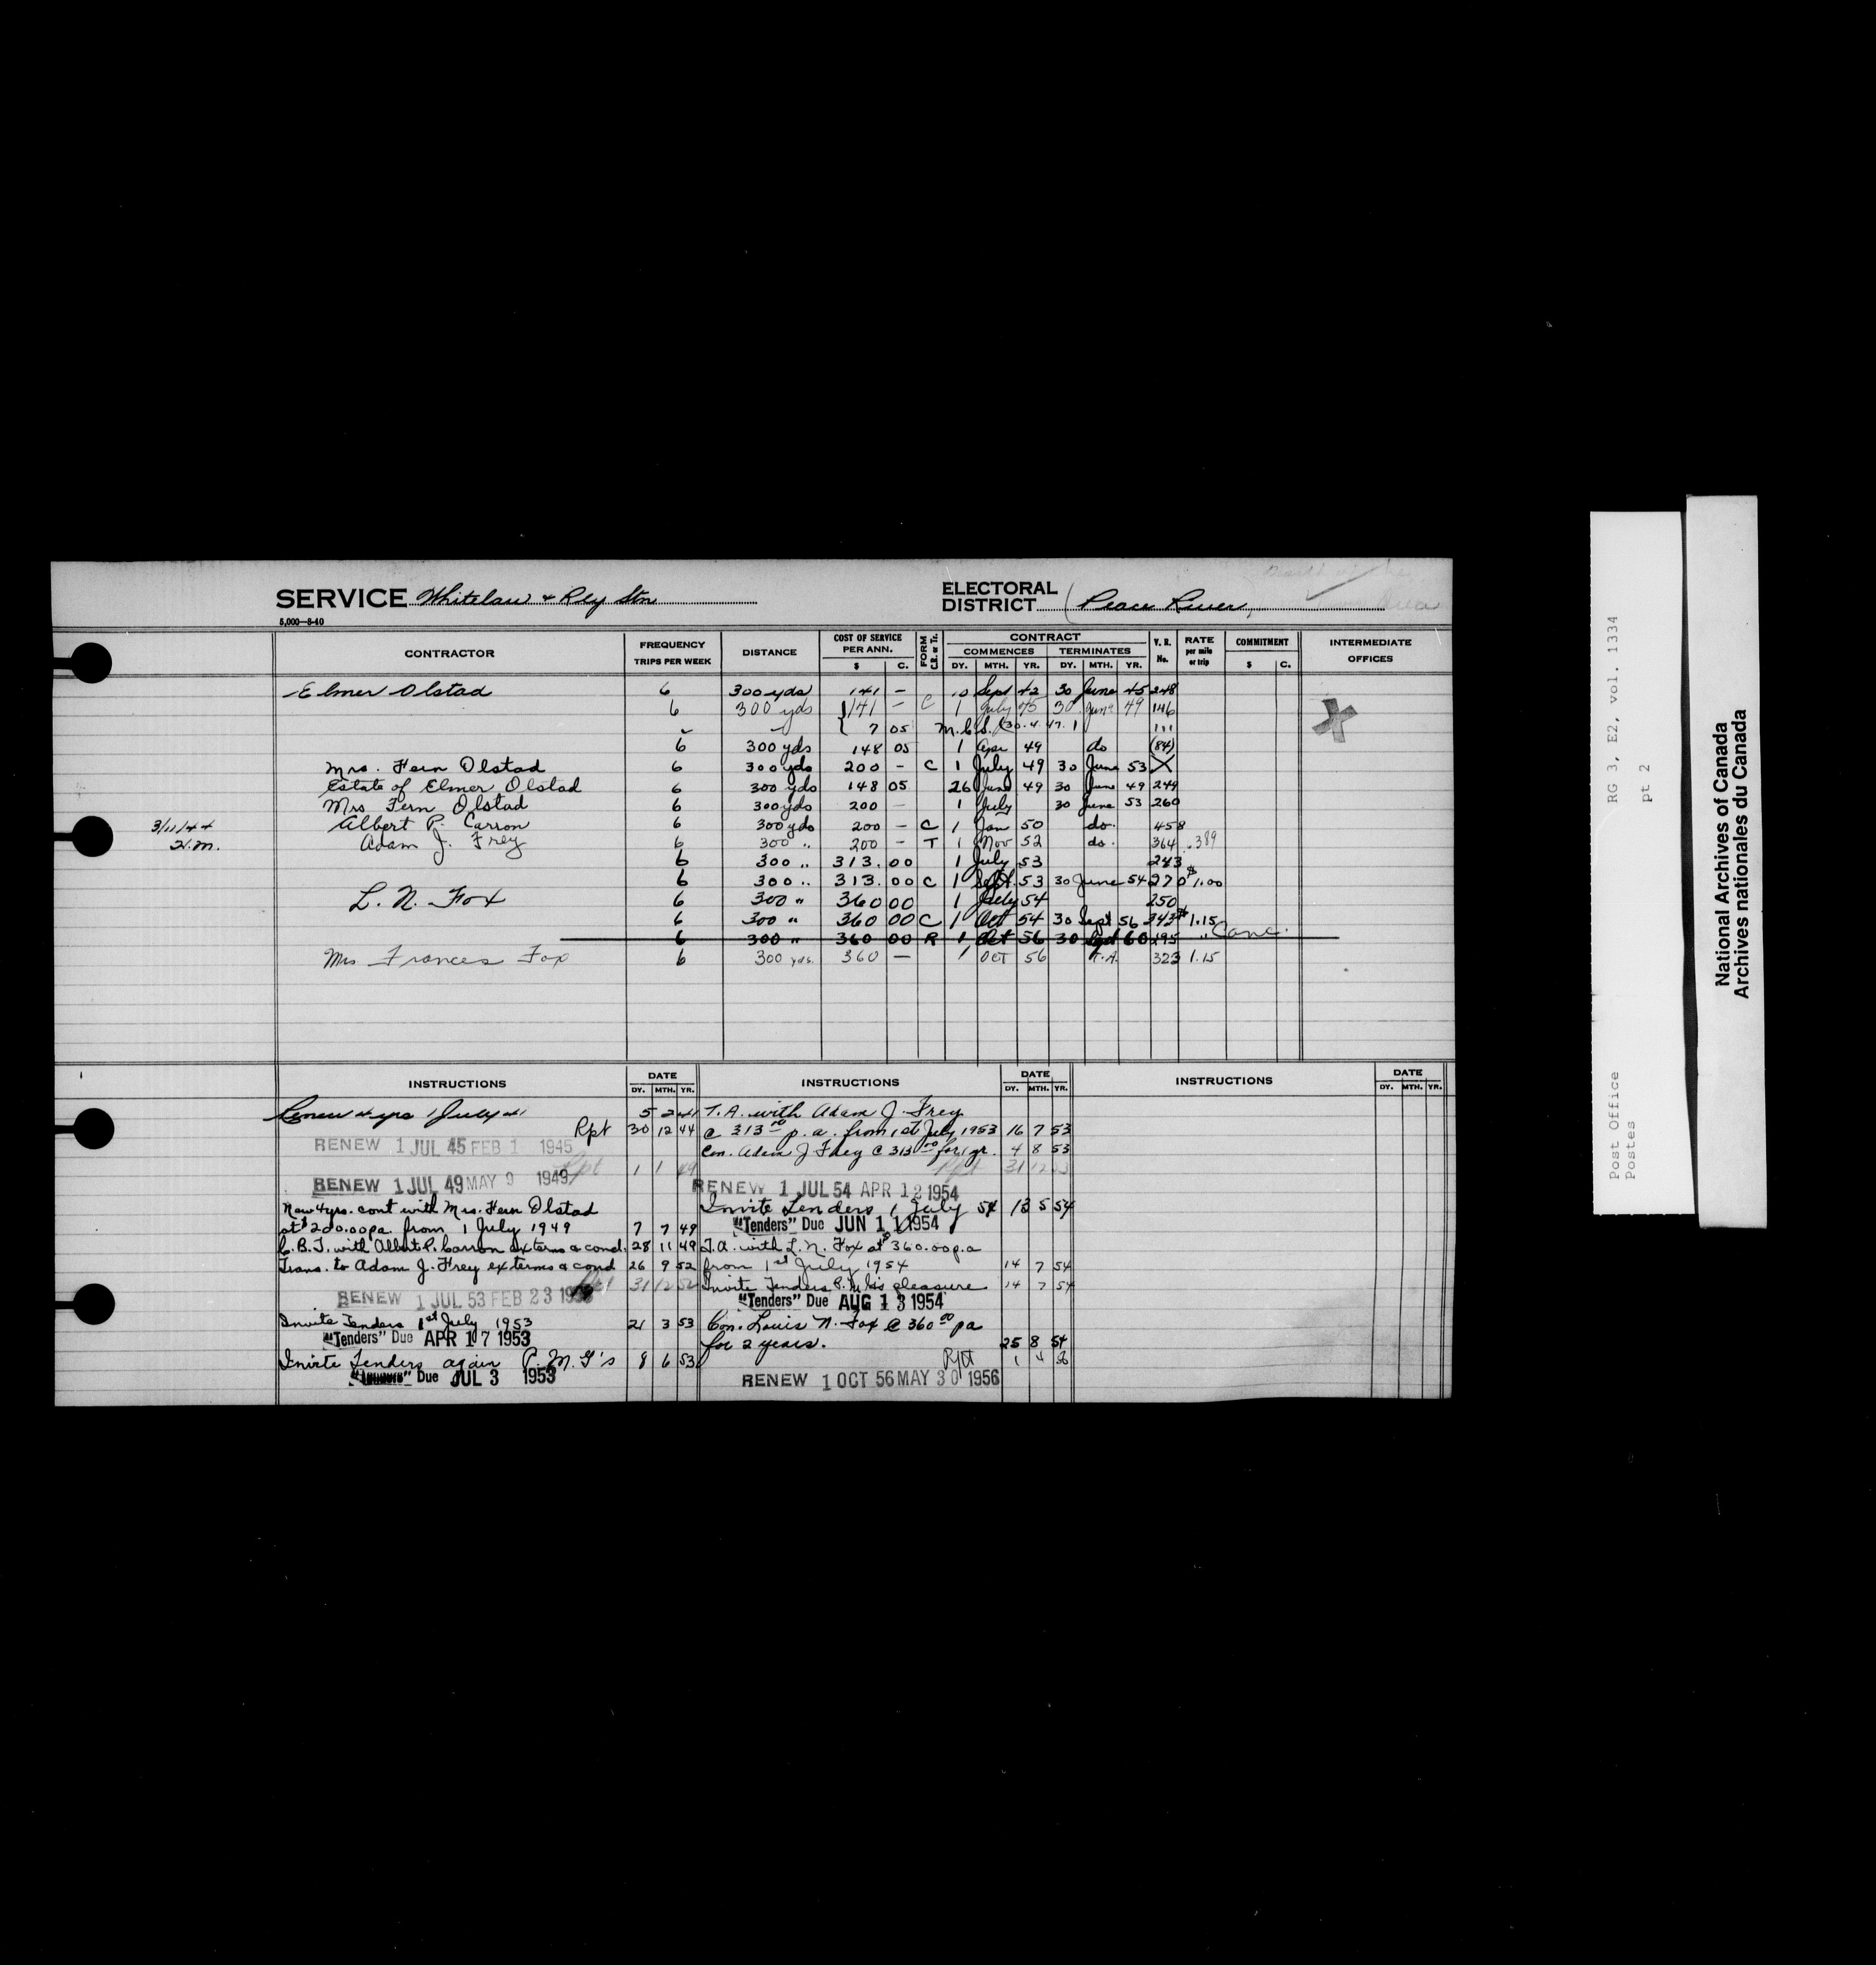 SERVICE Whitelaw & Rly Stn
ELECTORAL DISTRICT (Peace River)
5,000—8-40
CONTRACTOR FREQUENCY TRIPS PER WEEK DISTANCE COST OF SERVICE PER ANN. $ C. FORM C.B. or Tr. CONTRACT COMMENCES DY. MTH. YR. TERMINATES DY. MTH. YR. V. R. No. RATE per mile or trip COMMITMENT $ C. INTERMEDIATE OFFICES
Elmer Olstad 6 300 yds 141 — 10 Sept 42 30 June 45 248
6 300 yds 141 — C 1 July 45 30 June 49 146
7 05 M.C.S. (30.4.47.) 111
6 300 yds 148 05 1 Apr 49 do (84)
Mrs. Fern Olstad 6 300 yds 200 — C 1 July 49 30 June 53 X
Estate of Elmer Olstad 6 300 yds 148 05 26 June 49 30 June 49 249
Mrs Fern Olstad 6 300 yds 200 — 1 July 30 June 53 260
3/11/44 Albert P. Carron 6 300 yds 200 — C 1 Jan 50 do. 458
H.M. Adam J. Frey 6 300 " 200 — T 1 Nov 52 do. 364 .389
6 300 " 313.00 1 July 53 243
6 300 " 313.00 C 1 Sept. 53 30 June 54 270 $1.00
L. N. Fox 6 300 " 360 00 1 July 54 250
6 300 " 360 00 C 1 Oct 54 30 Sept 56 343 $1.15
6 300 " 360 00 R 1 Oct 56 30 Sept 60 295 " Canc.
Mrs Frances Fox 6 300 yds. 360 — 1 OCT 56 T.A. 323 1.15
INSTRUCTIONS DATE DY. MTH. YR.
Renew 4 yrs 1 July 41 5 2 41
Rpt 30 12 44
RENEW 1 JUL 45 FEB 1 1945
Rpt 1 1 49
RENEW 1 JUL 49 MAY 9 1949
New 4 yrs. cont with Mrs. Fern Olstad
at $200.00 pa. from 1 July 1949 7 7 49
C.B.T. with Albert P. Carron ex terms & cond. 28 11 49
Trans. to Adam J. Frey ex terms & cond 26 9 52
Rpt 31 12 52
RENEW 1 JUL 53 FEB 23
Invite Tenders 1st July 1953 21 3 53
"Tenders" Due APR 17 1953
Invite Tenders again P.M.G's 8 6 53
"Tenders" Due JUL 3 1953
INSTRUCTIONS DATE DY. MTH. YR.
T.A. with Adam J. Frey
@ 313.00 p.a. from 1st July 1953 16 7 53
Con. Adam J Frey @ 313.00 for 1 yr. 4 8 53
Rpt 31 12 53
RENEW 1 JUL 54 APR 12 1954
Invite Tenders 1 July 54 13 5 54
"Tenders" Due JUN 11 1954
T.A. with L. N. Fox at $360.00 p.a
from 1st July 1954 14 7 54
Invite Tenders P.M.G's pleasure 14 7 54
"Tenders" Due AUG 13 1954
Con. Louis N. Fox @ 360.00 pa
for 2 years. 25 8 54
Rpt 1 4 56
RENEW 1 OCT 56 MAY 30 1956
INSTRUCTIONS DATE DY. MTH. YR.
Post Office RG 3, E2, vol. 1334
Postes pt 2
National Archives of Canada
Archives nationales du Canada